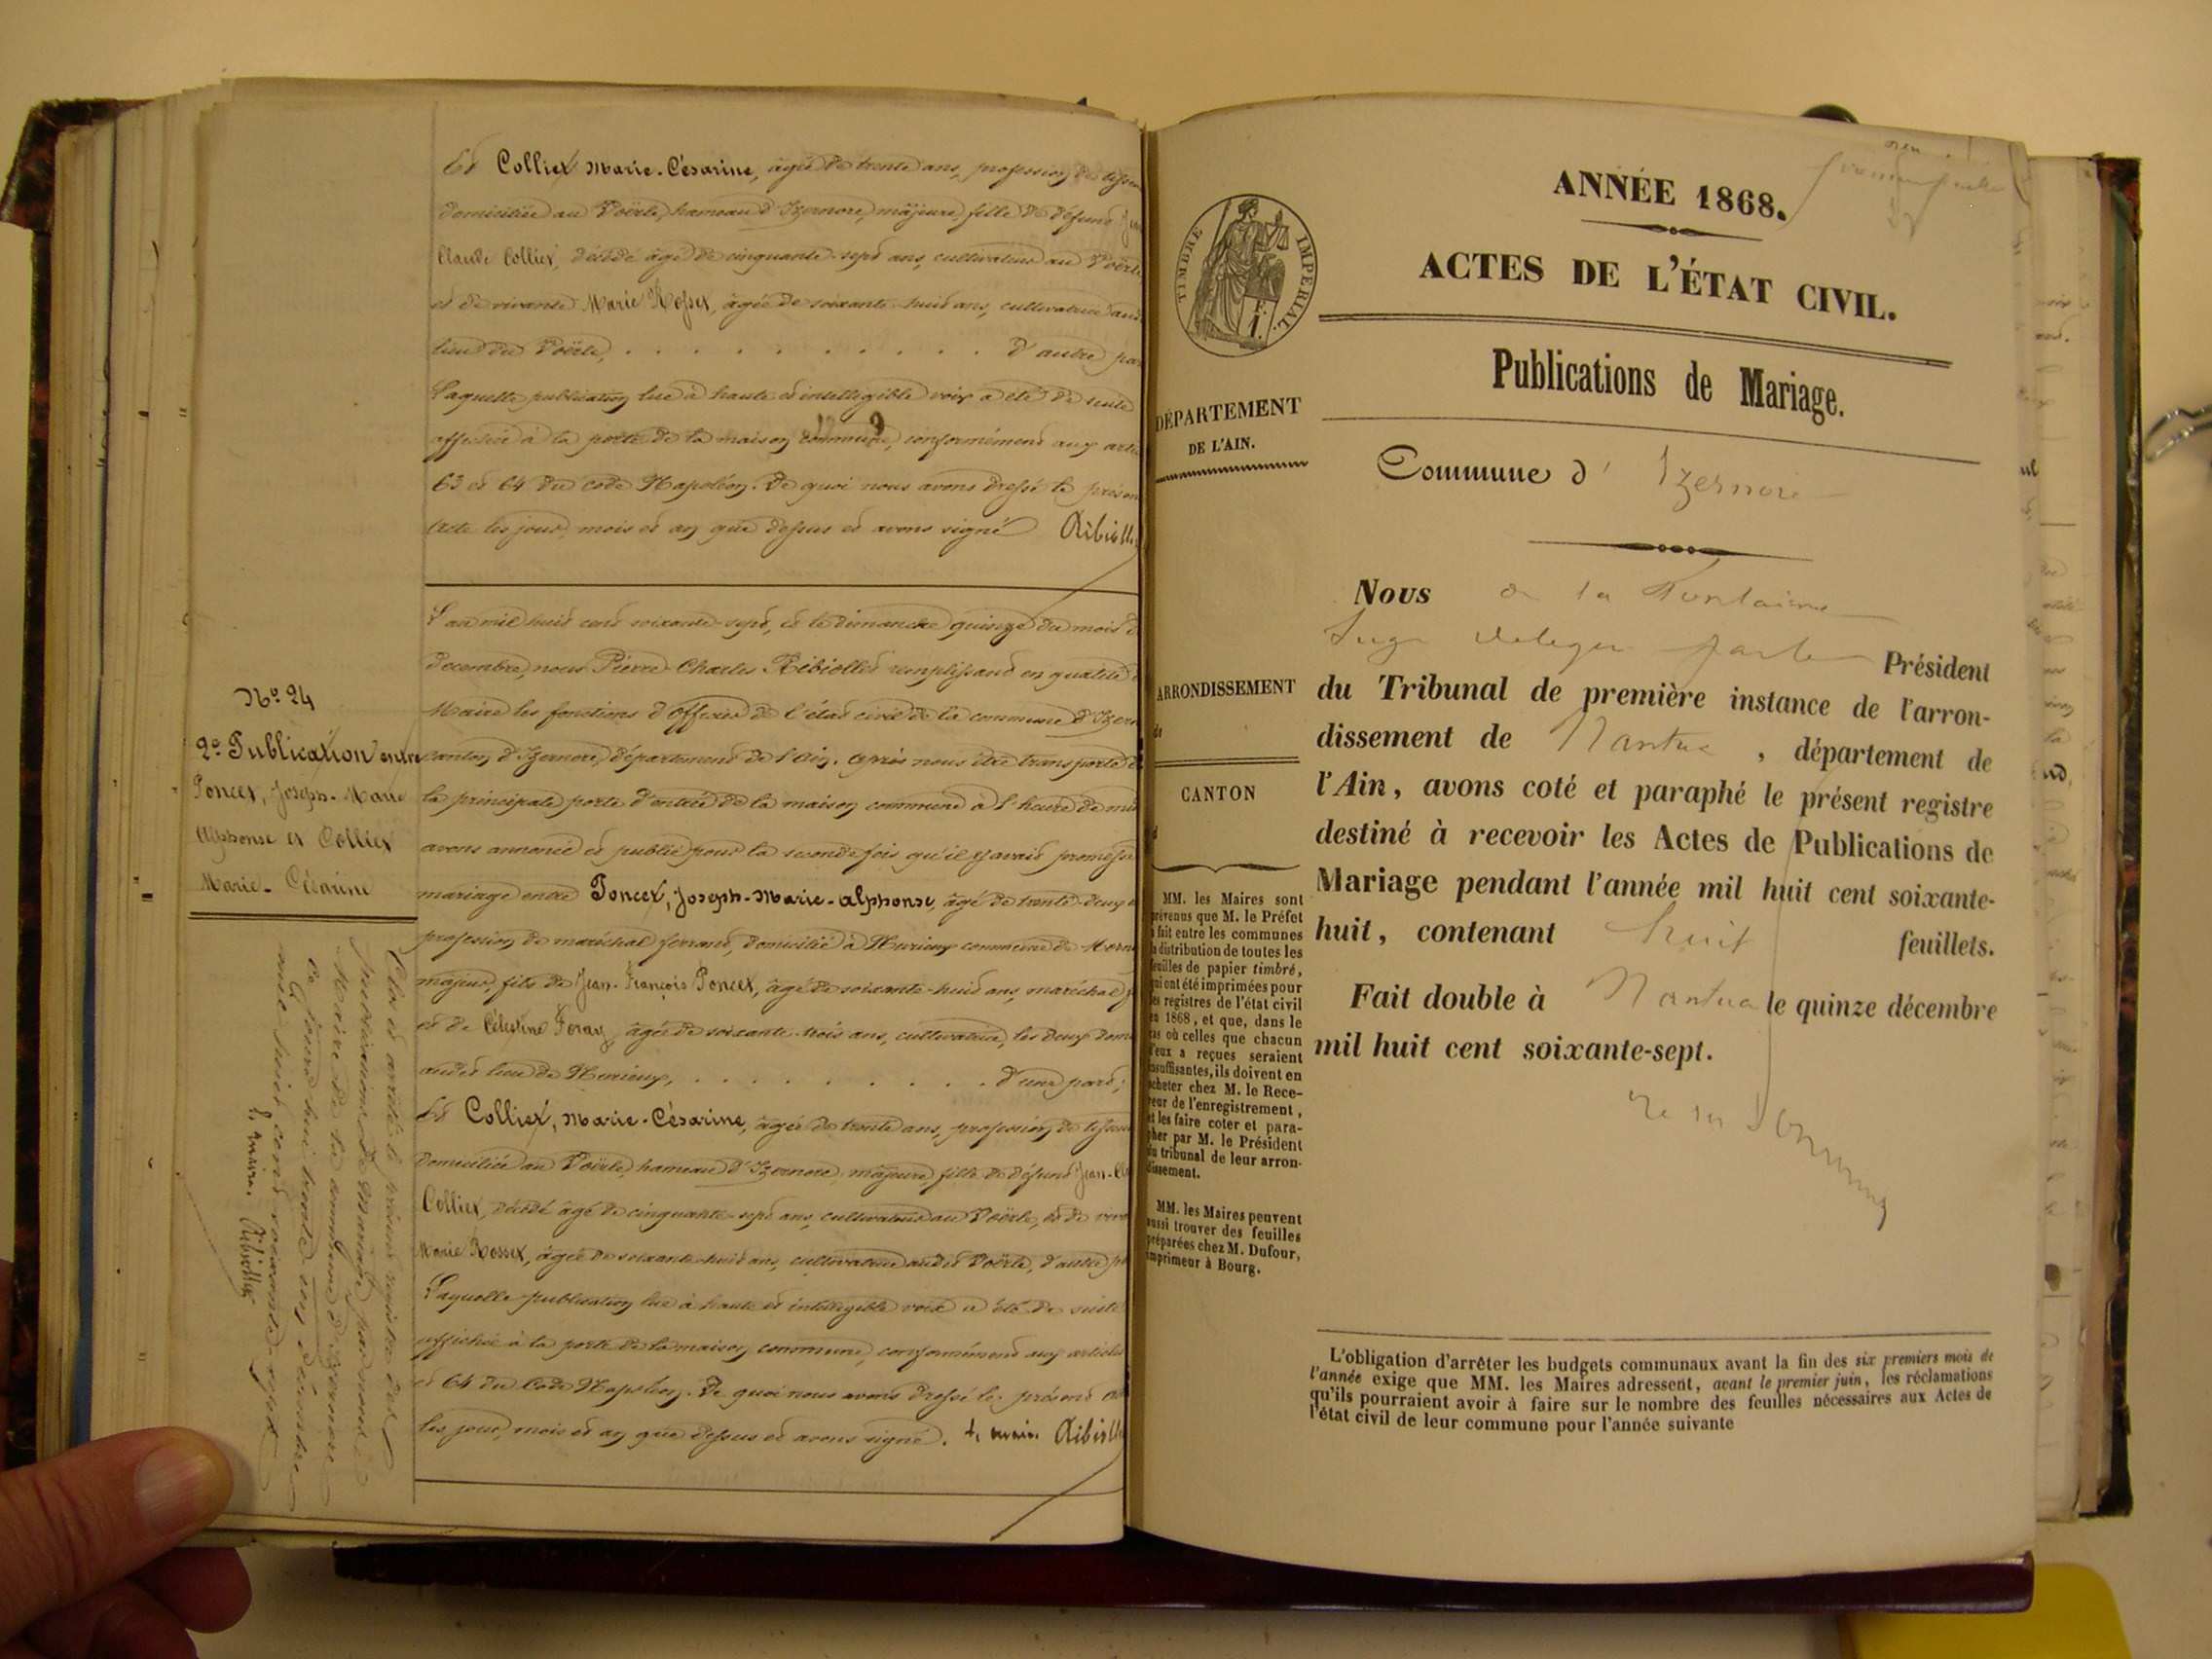 Et Colliex Marie-Césarine, âgée de trente ans, profession de
domiciliée au Voërle, hameau d'Izernore, majeure, fille de défunt
Claude Colliex, décédé âgé de cinquante-sept ans, cultivateur au Voërle
et de vivante Marie Rossex, âgée de soixante-huit ans, cultivatrice
lieu du Voërle, . . . . . . . . . . d'autre
Laquelle publication lue à haute et intelligible voix a été de suite
affichée à la porte de la maison commune, conformément aux
63 et 64 du code Napoléon. De quoi nous avons dressé le
acte les jour, mois et an que dessus et avons signé
L'an mil huit cent soixante-sept, et le dimanche quinze du mois de
décembre, nous Pierre-Charles Ribiollet remplissant en qualité de
Maire les fonctions d'officier de l'état civil de la commune
canton d'Izernore, département de l'Ain. après nous être transporté
la principale porte d'entrée de la maison commune à l'heure de
avons annoncé et publié pour la seconde fois qu'il y avait
mariage entre Poncex, Joseph-Marie-Alphonse, âgé de trente-deux
profession de maréchal ferrant, domicilié à commune de
majeur, fils de Jean-François Poncex, âgé de soixante-huit ans, maréchal
et de Célestine Foray, âgée de soixante-trois ans, cultivatrice, les deux
audit lieu de . . . . . . . . . . d'une part;
Et Colliex, Marie-Césarine, âgée de trente ans, profession de
domiciliée au Voërle, hameau d'Izernore, majeure, fille de défunt
Colliex, décédé âgé de cinquante-sept ans, cultivateur au Voërle, et de
Marie Rossex, âgée de soixante-huit ans, cultivatrice audit Voërle, d'autre
Laquelle publication lue à haute et intelligible voix a été de suite
affichée à la porte de la maison commune, conformément aux articles
et 64 du Code Napoléon. De quoi nous avons dressé le présent
les jour, mois et an que dessus et avons signé. le maire
No 24
2e Publication entre
Poncex, Joseph-Marie
Alphonse et Colliex
Marie-Césarine
Clos et arrêté le présent registre des
publications de mariage par nous
Maire de la commune d'Izernore
ce jourd'hui trente un décembre
mil huit cent soixante sept
Le maire.
ANNÉE 1868.
ACTES DE L'ÉTAT CIVIL.
Publications de Mariage.
TIMBRE IMPERIAL.
DÉPARTEMENT
DE L'AIN.
Commune d' Izernore
Nous de la Fontaine
Juge délégué Président
du Tribunal de première instance de l'arron-
dissement de Nantua, département de
l'Ain, avons coté et paraphé le présent registre
destiné à recevoir les Actes de Publications de
Mariage pendant l'année mil huit cent soixante-
huit, contenant huit feuillets.
Fait double à Nantua le quinze décembre
mil huit cent soixante-sept.
ARRONDISSEMENT
de
CANTON
d
MM. les Maires sont
prévenus que M. le Préfet
a fait entre les communes
la distribution de toutes les
feuilles de papier timbré,
qui ont été imprimées pour
les registres de l'état civil
en 1868, et que, dans le
cas où celles que chacun
d'eux a reçues seraient
insuffisantes, ils doivent en
acheter chez M. le Rece-
veur de l'enregistrement,
et les faire coter et para-
pher par M. le Président
du tribunal de leur arron-
dissement.
MM. les Maires peuvent
aussi trouver des feuilles
préparées chez M. Dufour,
imprimeur à Bourg.
L'obligation d'arrêter les budgets communaux avant la fin des six premiers mois de
l'année exige que MM. les Maires adressent, avant le premier juin, les réclamations
qu'ils pourraient avoir à faire sur le nombre des feuilles nécessaires aux Actes de
l'état civil de leur commune pour l'année suivante